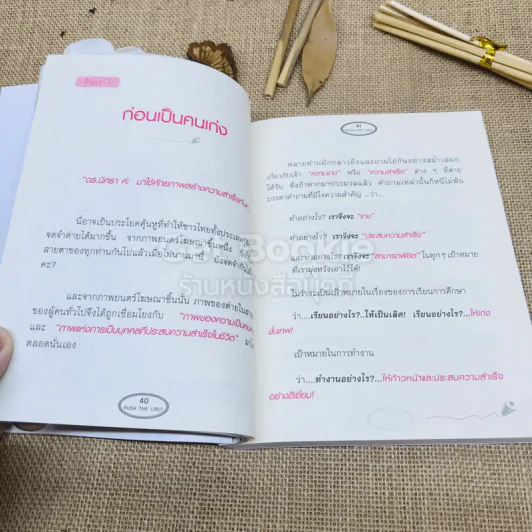 Part 1
ก่อนเป็นคนเก่ง
"ดร.นิศรา ค่ะ มาใช้ศักยภาพสร้างความสำเร็จกัน
นี่อาจเป็นประโยคคุ้นหูที่ทำให้ชาวไทยทั้งประเทศ
จดจำต่ายได้มากขึ้น จากภาพยนตร์โฆษณาชิ้นหนึ่ง
สายตาของทุกท่านกันไปแล้วเมื่อไม่นานมานี้ ยังจดจำกันได้
คะ?
และจากภาพยนตร์โฆษณาชิ้นนั้น ภาพของต่ายใน
ของผู้คนทั่วไปจึงได้ถูกเชื่อมโยงกับ "ภาพของความเป็นคน
และ "ภาพแห่งการเป็นบุคคลที่ประสบความสำเร็จในชีวิต"
ตลอดนั่นเอง
40
PUSH THE LIMIT
41
PUSH THE LIMIT
หลายท่านมักกล่าวถึงและถามไถ่กันอย่างสม่ำเสมอ
เกี่ยวกับเจ้า "ความเก่ง" หรือ "ความสำเร็จ" ต่าง ๆ ที่ต่าย
ได้รับ ซึ่งถ้าหากมาประมวลแล้ว คำถามเหล่านั้นก็หนีไม่พ้น
บรรดาคำถามที่มีใจความสำคัญ ...ว่า...
ทำอย่างไร? เราจึงจะ "เก่ง"
ทำอย่างไร? เราจึงจะ "ประสบความสำเร็จ"
และทำอย่างไร? เราจึงจะ "สามารถพิชิต" ในทุก ๆ เป้าหมาย
ที่เรามุ่งหวังเอาไว้ได้!
ไม่ว่าจะเป็นเป้าหมายในเรื่องของการเรียนการศึกษา
ว่า....เรียนอย่างไร?...ให้เป็นเลิศ! เรียนอย่างไร?...ให้เก่ง
ขั้นเทพ!
เป้าหมายในการทำงาน
ว่า....ทำงานอย่างไร?...ให้ก้าวหน้าและประสบความสำเร็จ
อย่างดีเยี่ยม!
Bookie
ร้านหนังสือแคท